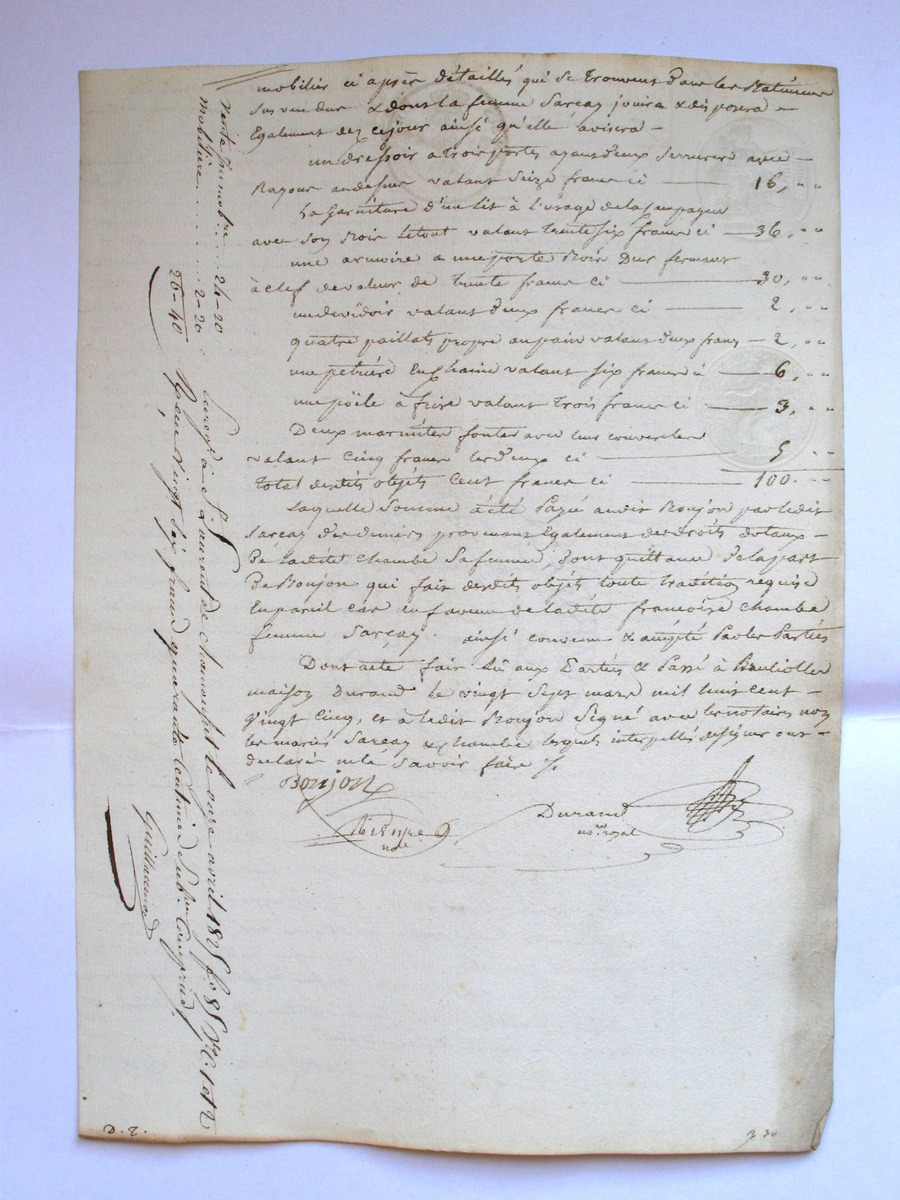 mobiliers ci après détaillés qui se trouvent dans les Batiments
sus vendus & dont la femme Sarcay jouira & disposera
Egalement dez ce jour ainsé qu'elle avisera –
un dressoir a trois portes ayant deux serrures avec –
Rayons audessus valant Seize francs ci — 16, " "
La Garniture d'un lit à l'usage de la campagne
avec son Bois le tout valant trente six francs ci — 36, " "
une armoire a une porte Bois dur fermant
à clef de valeur de trente francs ci — 30, " "
un devidoir valant deux francs ci — 2, " "
quatre paillats propre au pain valant deux francs – 2, " "
une petrière En valant six francs ci — 6, " "
une pöële à frire valant trois francs ci — 3, " "
Deux marmites fontes avec leur couvercles
valant Cinq francs les deux ci — 5 " "
Total desdits objets Cent francs ci — 100. " "
Laquelle Somme a été Payée audit Boujon par ledit
Sarcay des deniers provenant Egalement des droits dotaux
de ladite Chambe Sa femme, Dont quittance de la part
de Boujon qui fait desdits objets toute tradition requise
En pareil cas en faveur de ladite françoise Chambe
femme Sarcay. ainsé convenu & arrêté Par les Parties
Dont acte fait lû aux Parties & Passé à
maison Durand le vingt Sept mars mil huit cent –
Vingt Cinq, et à ledit Boujon Signé avec les notaires non
les mariés Sarcay & Chambe lesquels interpellés de signer ont –
declaré ne le Savoir faire ./.
Boujon
not.
Durand
no.re royal
Vente Immob.re 24–20
mobiliere 2–20
26–40
Enreg.é à S.t Laurent de Chamousset le onze avril 1825 f.o 85 V.o C. 1 et 2
Reçu vingt Six francs quarante Centimes Sub.on Comprise ./.
Guillaumond
D. 7.